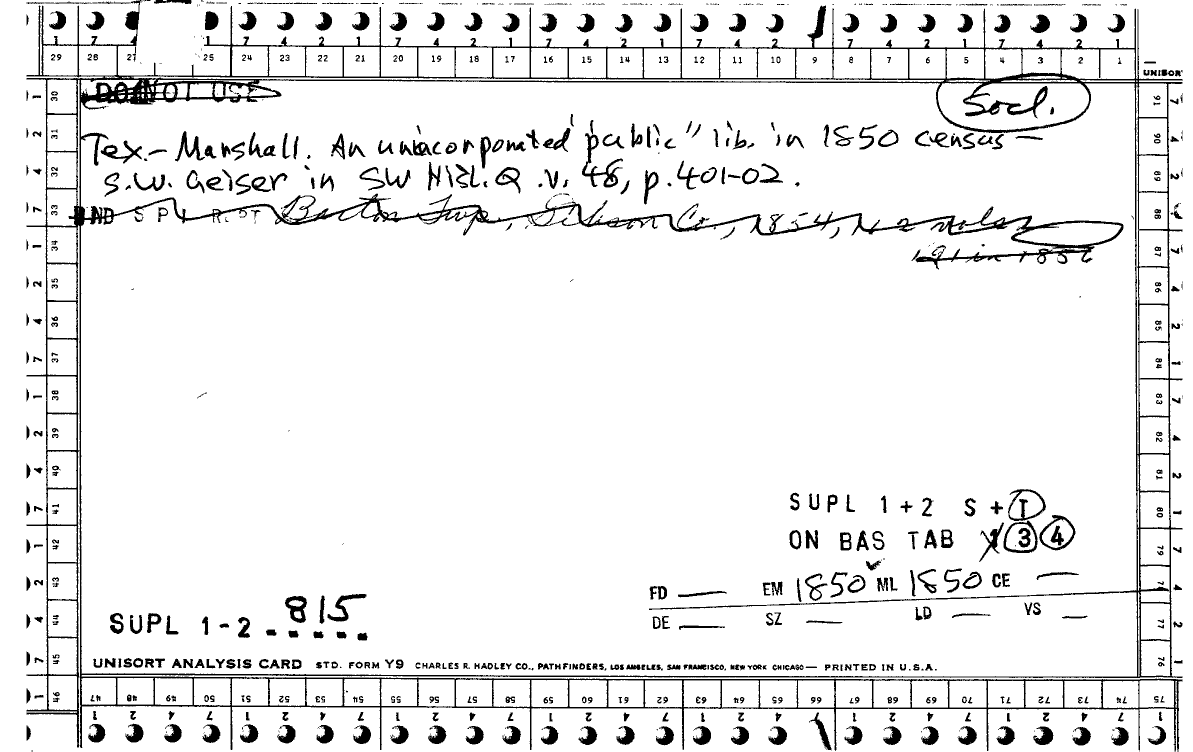 7 4 1 7 4 2 1 7 4 2 1 7 4 2 1 7 4 2 1 7 4 2 1 7 4 2 1
29 28 27 25 24 23 22 21 20 19 18 17 16 15 14 13 12 11 10 9 8 7 6 5 4 3 2 1
UNISORT
DO NOT USE
Socl.
Tex.- Marshall. An unincorporated "public" lib. in 1850 census -
S.W. Geiser in SW Hist. Q. v. 48, p. 401-02.
IND SPI R.PT Barton Twp., Gibson Co., 1854, No vols
191 in 1856
SUPL 1+2 S + T
ON BAS TAB 1 3 4
FD — EM 1850 ML 1850 CE —
DE — SZ — LD — VS —
SUPL 1-2 815
UNISORT ANALYSIS CARD STD. FORM Y9 CHARLES R. HADLEY CO., PATHFINDERS, LOS ANGELES, SAN FRANCISCO, NEW YORK CHICAGO — PRINTED IN U.S.A.
47 48 49 50 51 52 53 54 55 56 57 58 59 60 61 62 63 64 65 66 67 68 69 70 71 72 73 74 75
1 2 4 7 1 2 4 7 1 2 4 7 1 2 4 7 1 2 4 7 1 2 4 7 1 2 4 7